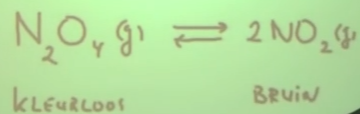 N₂O₄(g) ⇌ 2NO₂(g)
KLEURLOOS BRUIN